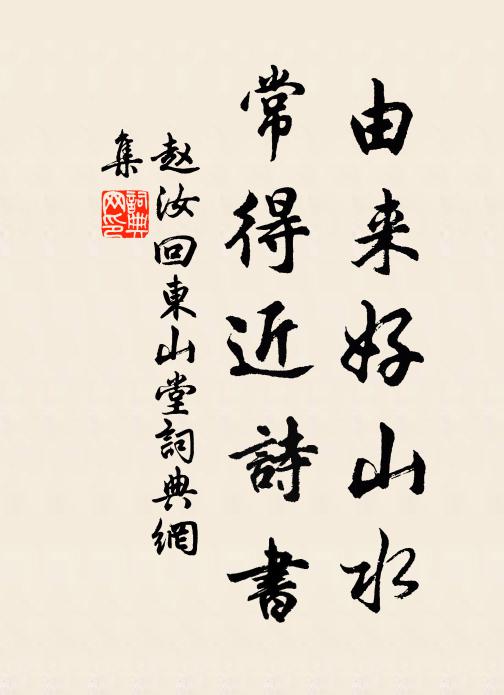 由来好山水
常得近詩書
赵汝回東山堂詞典網
集
詞典
网印